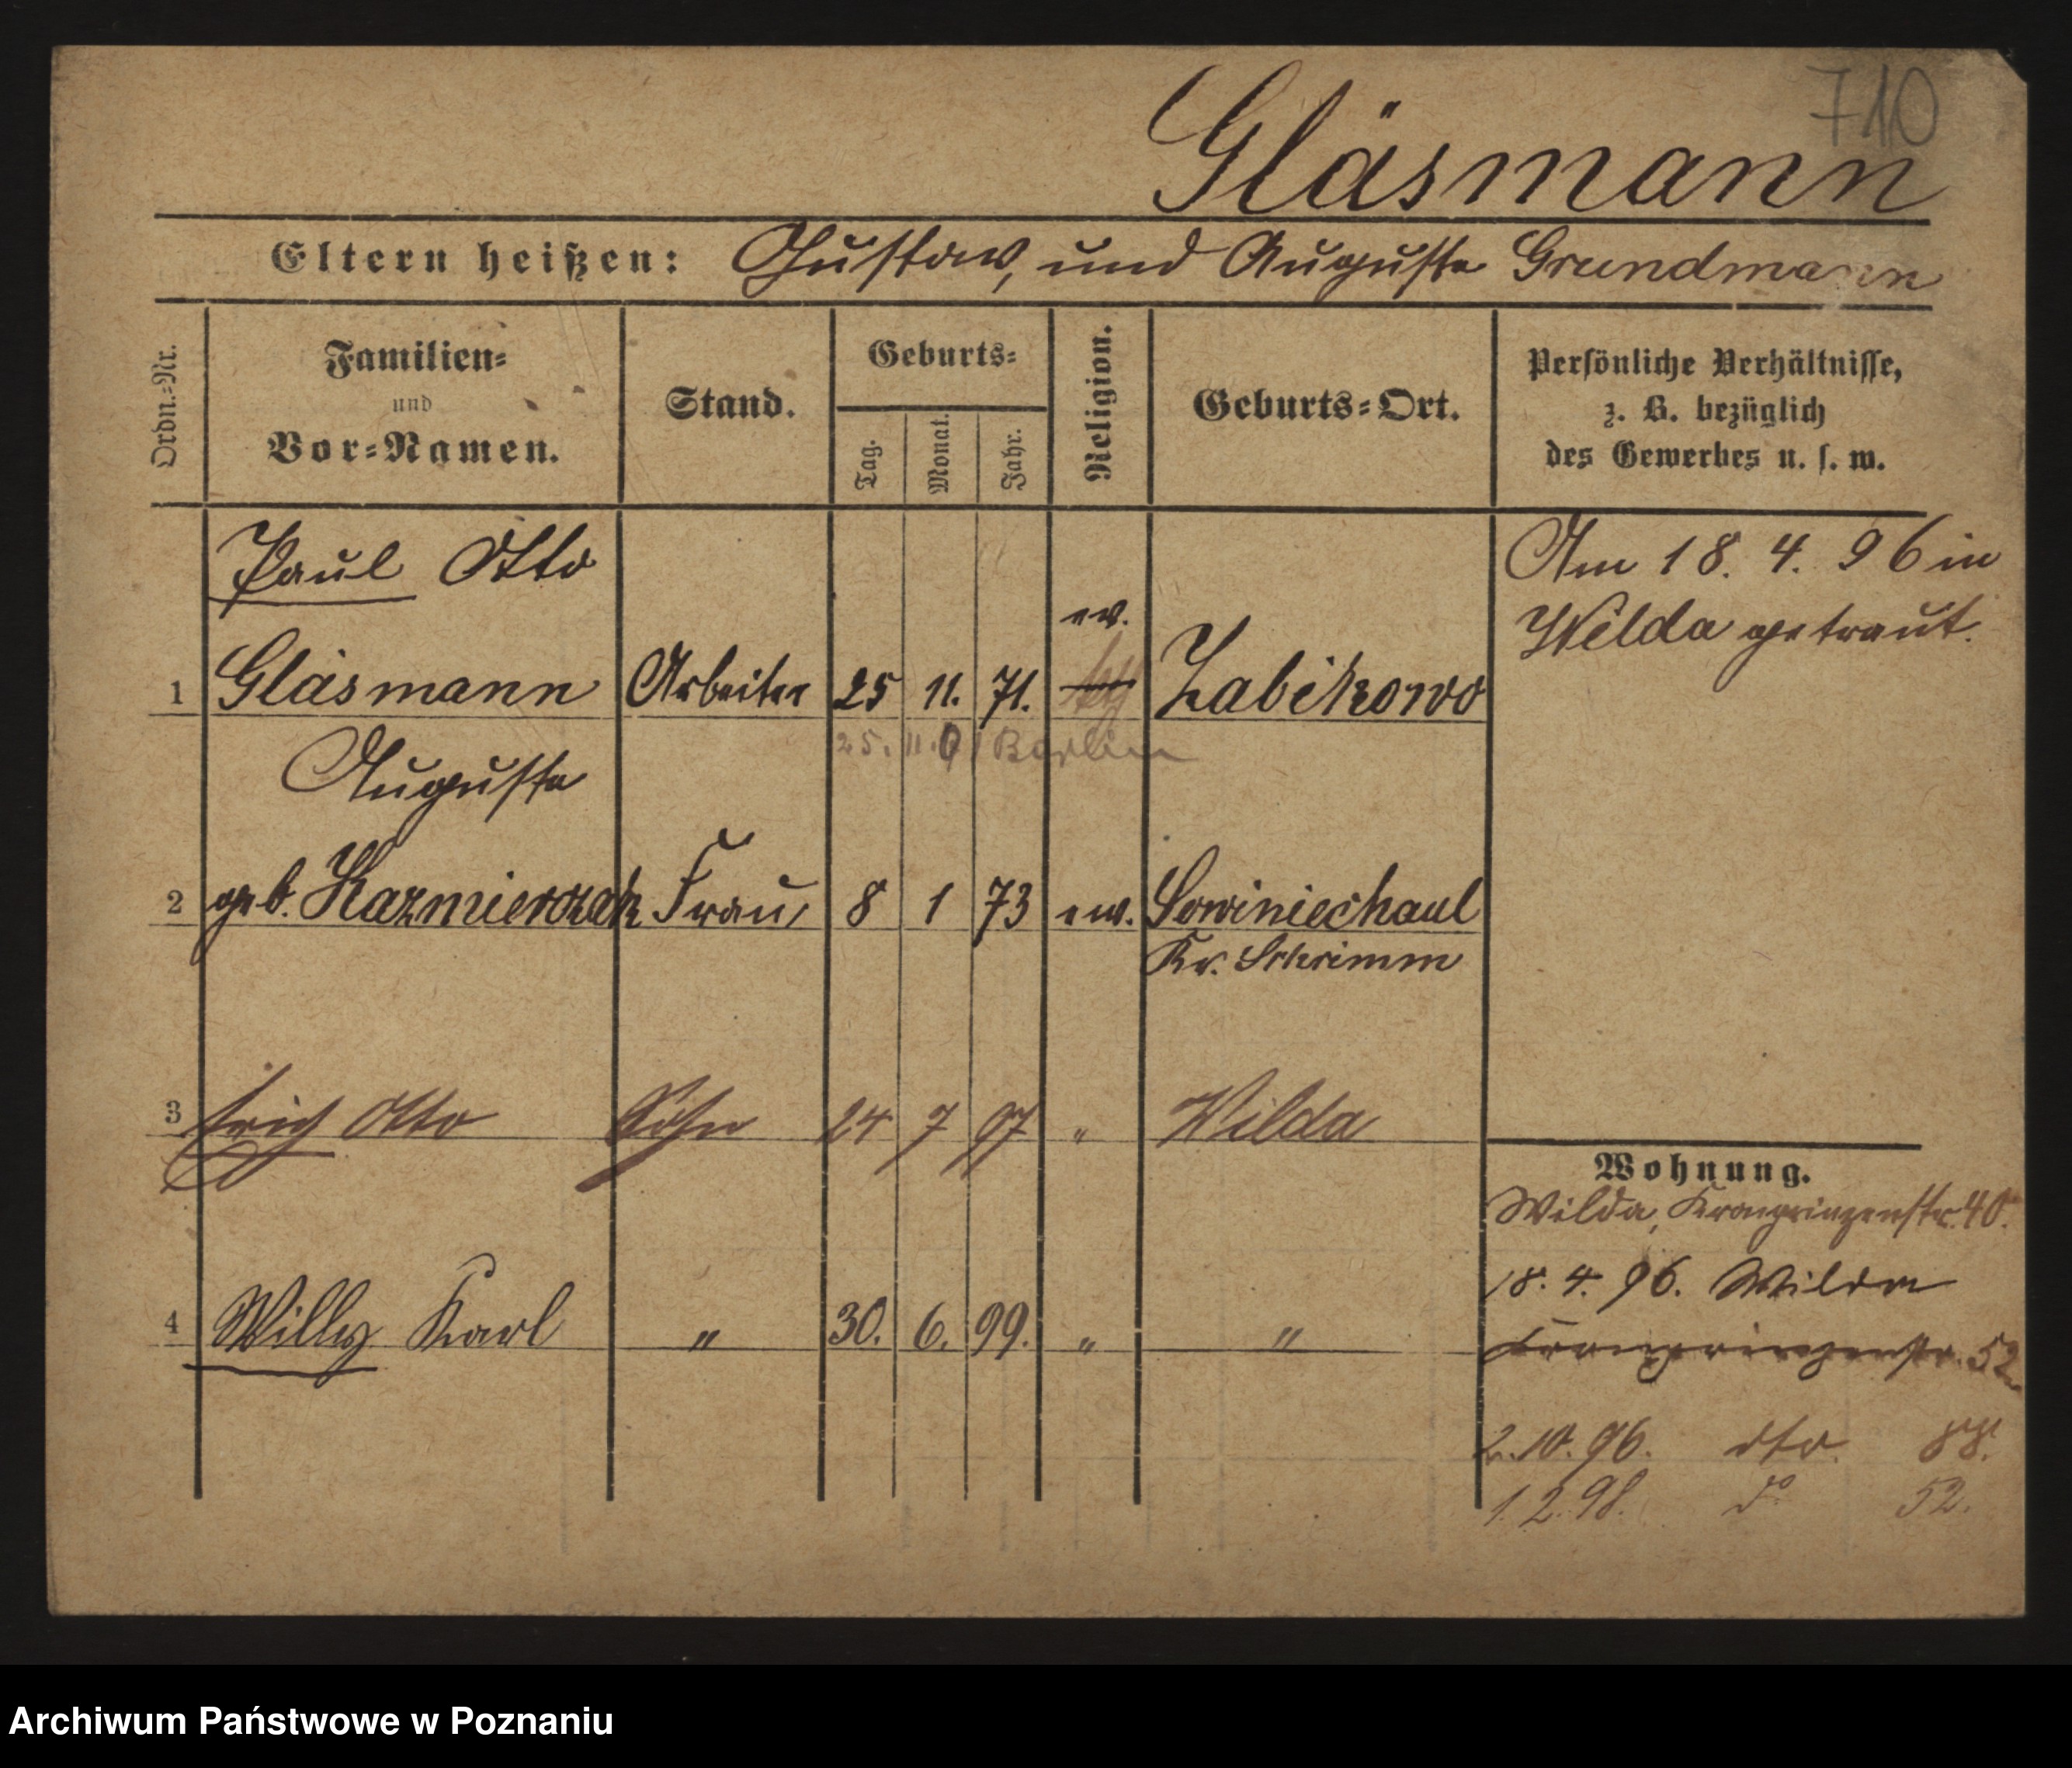 710
Gläsmann
Eltern heißen: Gustav, und Auguste Grundmann
Ordn.=Nr.
Familien=
und
Vor=Namen.
Stand.
Geburts=
Tag.
Monat.
Jahr.
Religion.
Geburts=Ort.
Persönliche Verhältnisse,
z. B. bezüglich
des Gewerbes u. s. w.
Paul Otto
1 Gläsmann Arbeiter 25 11. 71. ev. Zabikowo
Am 18. 4. 96 in
Wilda getraut.
25. 11. 01 Berlin
Auguste
2 geb. Kazmierczak Frau, 8 1 73 ev. Sowiniechaul
Kr. Schrimm
3 Erich Otto Sohn 24 7 97 " Wilda
4 Willy Karl " 30. 6. 99. " "
Wohnung.
Wilda, Kronprinzenstr. 40.
18. 4. 96. Wilda
Kronprinzenstr. 52
2. 10. 96. dto. 88.
1. 2. 98. do 52.
Archiwum Państwowe w Poznaniu